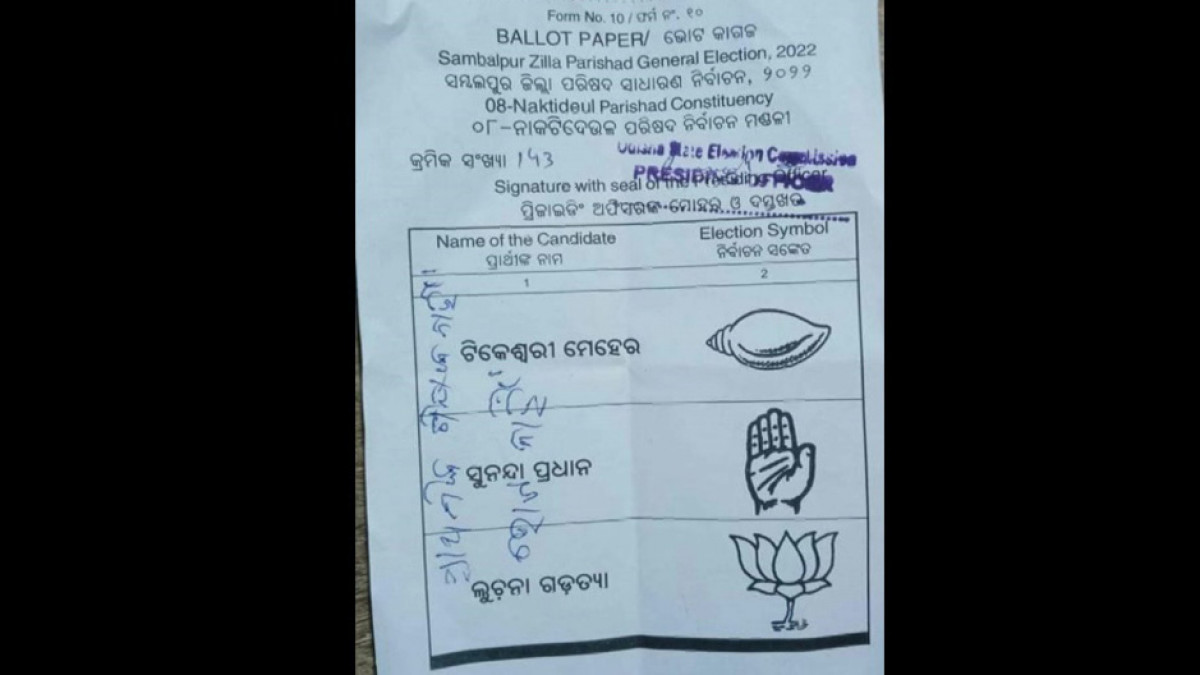 Form No. 10 / ଫର୍ମ ନଂ. ୧୦
BALLOT PAPER/ ଭୋଟ କାଗଜ
Sambalpur Zilla Parishad General Election, 2022
ସମ୍ବଲପୁର ଜିଲ୍ଲା ପରିଷଦ ସାଧାରଣ ନିର୍ବାଚନ, ୨୦୨୨
08-Naktideul Parishad Constituency
୦୮-ନାକଟିଦେଉଳ ପରିଷଦ ନିର୍ବାଚନ ମଣ୍ଡଳୀ
କ୍ରମିକ ସଂଖ୍ୟା 143
Odisha State Election Commission
PRESIDING OFFICER
Signature with seal of the Presiding Officer
ପ୍ରିଜାଇଡିଂ ଅଫିସରଙ୍କ ମୋହର ଓ ଦସ୍ତଖତ
Name of the Candidate Election Symbol
ପ୍ରାର୍ଥୀଙ୍କ ନାମ ନିର୍ବାଚନ ସଙ୍କେତ
1 2
ଟିକେଶ୍ୱରୀ ମେହେର
ସୁନନ୍ଦା ପ୍ରଧାନ
ଲୁଚ଼ନା ଗଡ଼ତ୍ୟା